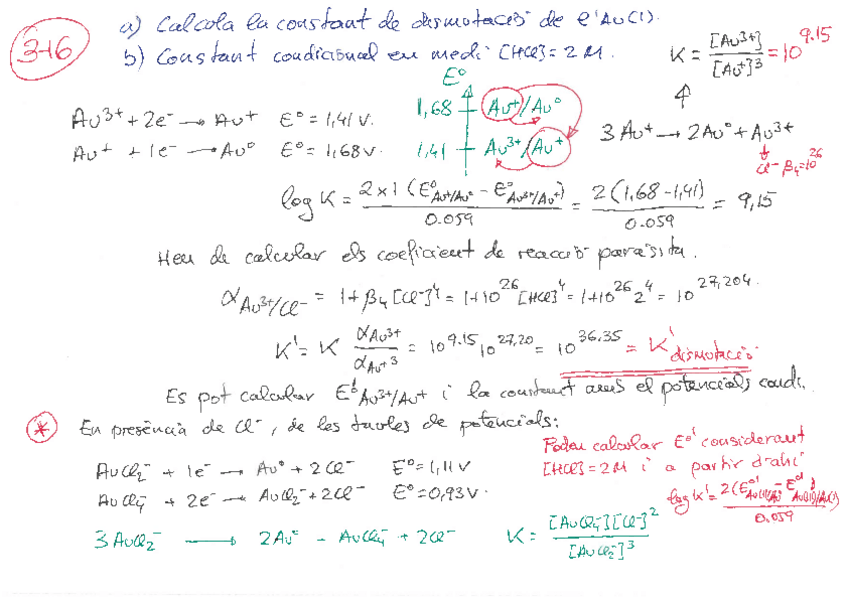 3-16
a) Calcola la constant de dismutació de l'Au(I).
b) Constant condicional en medi [HCl] = 2 M.
K = [Au3+] / [Au+]^3 = 10^9.15
Au3+ + 2e- → Au+ E° = 1,41 V.
Au+ + 1e- → Au° E° = 1,68 V.
E°
1,68 Au+/Au°
1,41 Au3+/Au+
3 Au+ → 2Au° + Au3+
Cl- β4=10^26
log K = 2x1 (E°Au+/Au° - E°Au3+/Au+) / 0.059 = 2(1,68-1,41) / 0.059 = 9,15
Heu de calcular els coeficient de reacció paràsita.
αAu3+/Cl- = 1+β4[Cl-]^4 = 1+10^26[HCl]^4 = 1+10^26 2^4 = 10^27,204.
K' = K αAu3+ / αAu+^3 = 10^9.15 10^27,20 = 10^36.35 = K' dismutació
Es pot calcular E°'Au3+/Au+ i la constant amb el potencials condi.
* En presència de Cl-, de les taules de potencials:
AuCl2- + 1e- → Au° + 2Cl- E° = 1,11 V
AuCl4- + 2e- → AuCl2- + 2Cl- E° = 0,93 V.
Podeu calcular E°' considerant
[HCl] = 2M i a partir d'ahí
log K' = 2(E°'Au(I)/Au - E°'Au(III)/Au(I)) / 0.059
3 AuCl2- → 2Au° - AuCl4- + 2Cl- K = [AuCl4-][Cl-]^2 / [AuCl2-]^3